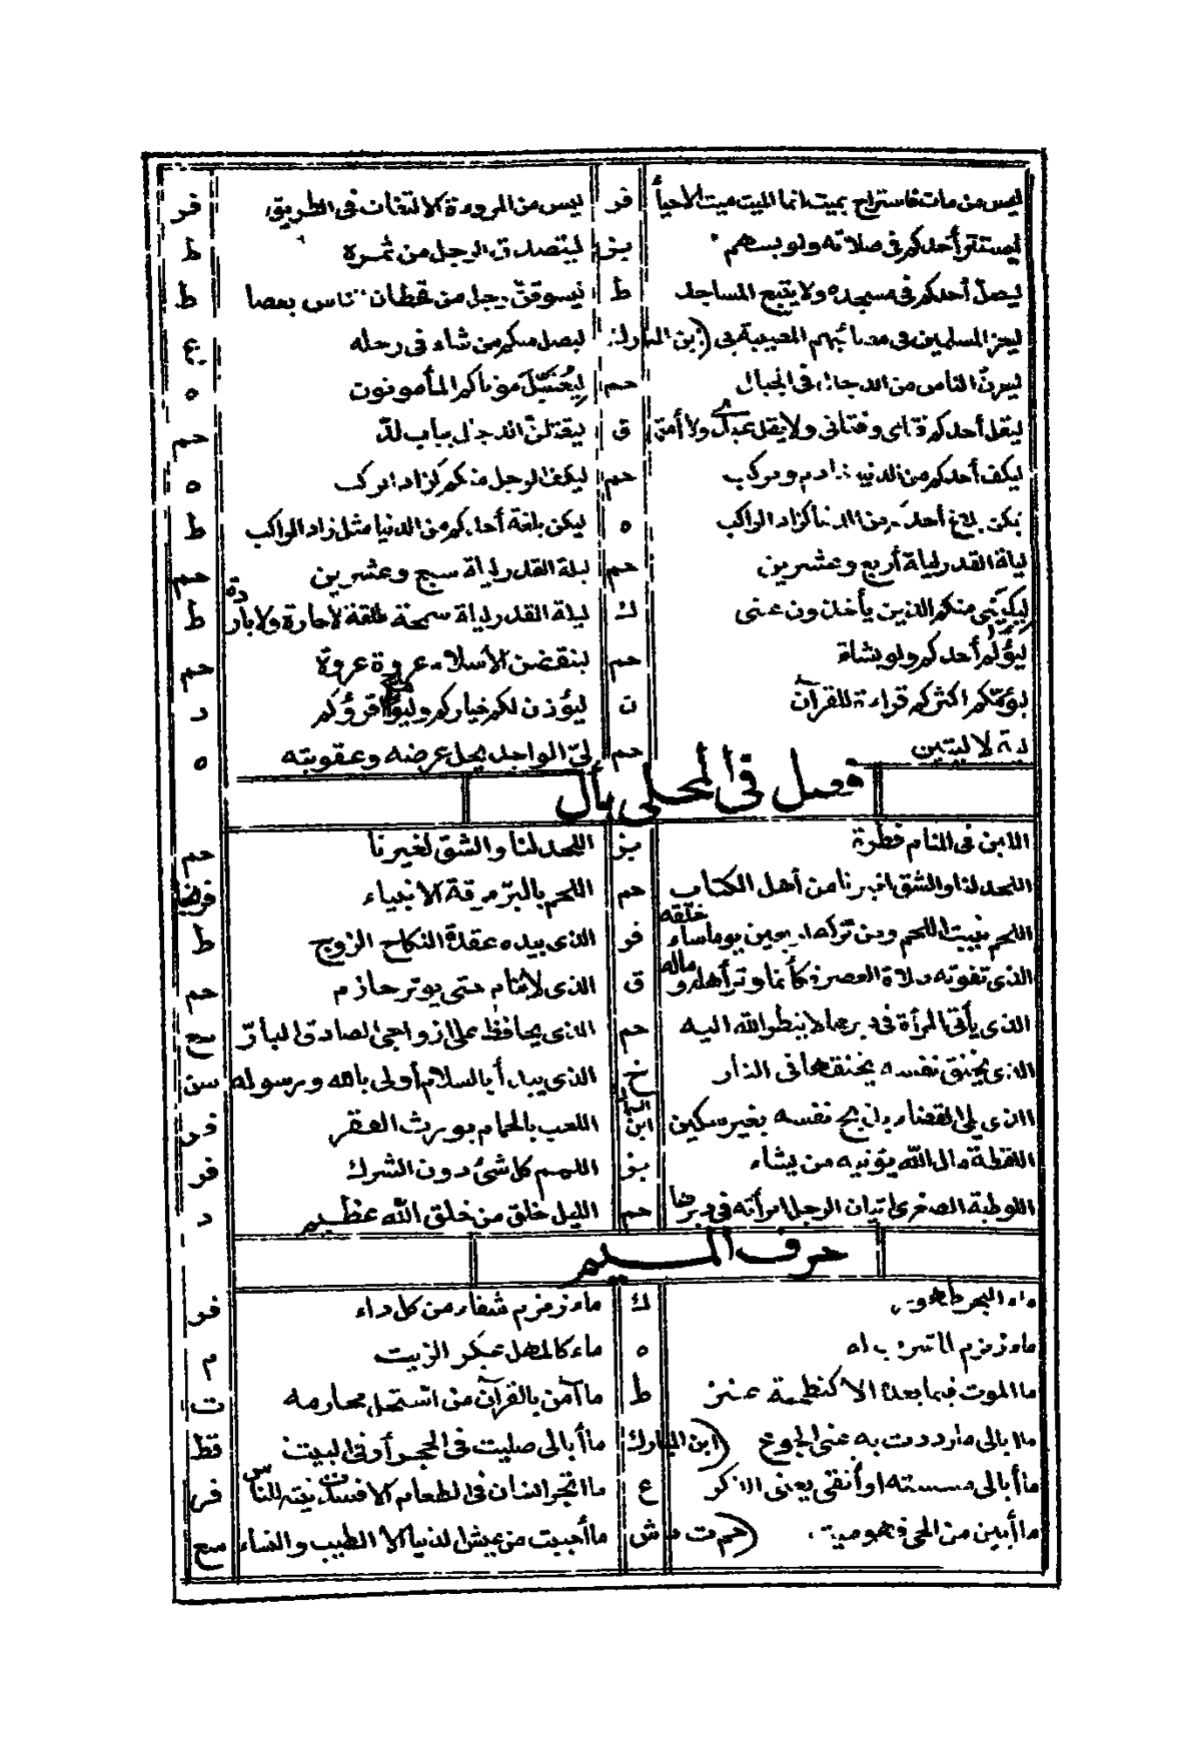 ليس من مات فاستراح بميت انما الميت ميت الأحيأ فر ليس من المروءة الالتفات فى الطريق فر
ليستتر أحدكم فى صلاته ولو بسهم بز ليتصدق الرجل من ثمره ط
ليصل أحدكم فى مسجده ولا يتبع المساجد ط رجل من قحطان الناس بعصا ط
ليعز المسلمين فى مصائبهم المصيبة بى (ابن المبارك ليصل منكم من شاء فى رحله ع
ليفرن الناس من الدجال فى الجبال حم ليُغَسِّلَ موتاكم المأمونون ه
ليقل أحدكم فتاى وفتاتى ولا يقل عبدى ولا أمتى ق ليقتلن الدجال بباب لدّ حم
ليكف أحدكم من الدنيا خادم ومركب حم ليكف الرجل منكم كزاد الركب ه
بلاغ أحدكم من الدنيا كزاد الراكب ه ليكن بلغة أحدكم من الدنيا مثل زاد الراكب ط
ليلة القدر ليلة أربع وعشرين حم ليلة القدر ليلة سبع وعشرين حم
منكم الذين يأخذون عنى ك ليلة القدر ليلة سمحة طلقة لا حارة ولا باردة ط
أحدكم ولو بشاة حم لينقضن الأسلام عروة عروة حم
ليؤمّكم اكثركم قراءة للقرآن ن ليؤذن لكم خياركم اقرؤكم د
لية لا ليتين حم ليّ الواجد يحل عرضه وعقوبته ه
فصل فى المحلى بأل
اللبن فى المنام فطرة بز اللحد لنا والشق لغيرنا حم
اللحد لنا والشق لغيرنا من أهل الكتاب حم اللحم بالبر مرقة الانبياء
اللحم ينبت اللحم ومن تركه اربعين يوما ساء خلقه فر الذى بيده عقدة النكاح الزوج ط
الذى تفوته صلاة العصر فكأنما وتر أهله وماله ق الذى لا ينام حتى يوتر حازم حم
الذى يأتى المرأة فى دبرها لا ينظر الله اليه حم الذى يحافظ على ازواجى الصادق البارّ سع
الذى يخنق نفسه يخنقها فى النار خ الذى يبدأ بالسلام أولى بالله ورسوله سن
الذى يلى القضاء يذبح نفسه بغير سكين اللعب بالحمام يورث الفقر فر
اللقطة مال الله يؤتيه من يشاء بز اللمم كل شئ دون الشرك فر
اللوطية الصغرى اتيان الرجل امرأته فى دبرها حم الليل خلق من خلق الله عظيم د
حرف الميم
ماء البحر طهور ك ماء زمزم شفاء من كل داء فر
ماء زمزم لما شرب له ه ماء كالمهل عكر الزيت م
ما الموت فيما بعده الا كنطحة عنز ط ما آمن بالقرآن من استحل محارمه ت
ما ابالى ما رددت به عنى الجوع (ابن المبارك ما أبالى صليت فى الحجر أو فى البيت قط
ما أبالى مسسته او أنفى يعنى الذكر ع ما اتجر فى الطعام الا فر
ما أبين من الحى فهو ميت (حم ت ش ما أحببت من عيش الدنيا الا الطيب والنساء سع